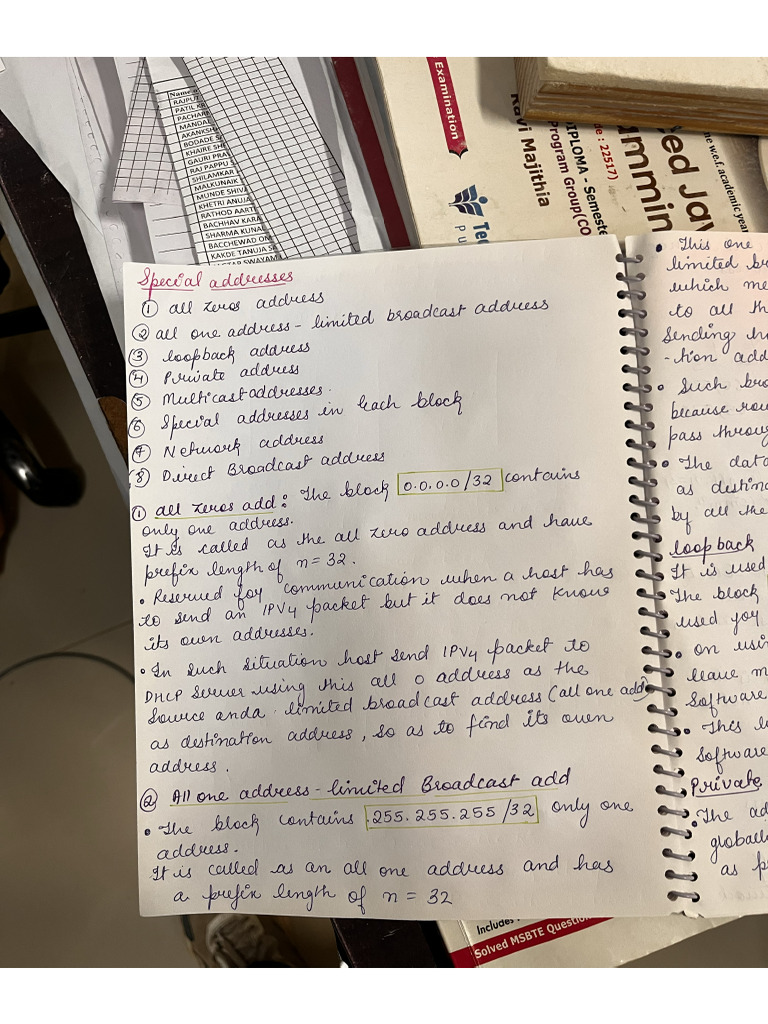 Name
RAJPU
PATIL KR
PACHAR
MANDAL
AKANKSH
BODADE S
KHAIRE SH
GAURI PRA
RAJ PAPPU
SHILAMKAR
MALKUNAIK
MUNDE SHIVA
KHETRI ANUJA
RATHOD AARTI
BACHHAV KARA
SHARMA KUNAL
BACCHEWAD OM
KAKDE TANUJA SA
SWAYAM
Examination
Ravi Majithia
Program Group(CO
DIPLOMA - Semeste
de : 22517)
mmin
ced Jav
me w.e.f. academic year
Tec
Pu
Special addresses
① all zeros address
② all one address - limited broadcast address
③ loopback address
④ Private address
⑤ Multicast addresses.
⑥ Special addresses in each block
⑦ Network address
⑧ Direct Broadcast address
① all zeros add : The block 0.0.0.0/32 contains
only one address.
It is called as the all zero address and have
prefix length of n = 32.
• Reserved for communication when a host has
to send an IPV4 packet but it does not know
its own addresses.
• In such situation host send IPV4 packet to
DHCP server using this all 0 address as the
Source anda limited broadcast address (all one add)
as destination address, so as to find its own
address.
② All one address - limited Broadcast add
• The block contains .255.255.255/32 only one
address.
It is called as an all one address and has
a prefix length of n = 32
• This one
limited br
which me
to all th
Sending h
-tion add
• Such bro
because rou
pass throug
• The data
as destina
by all the
loopback
It is used
• The block
used for
• on usi
leave m
Software
• This l
Software
Private
• The ad
globall
as p
Includes
Solved MSBTE Questio